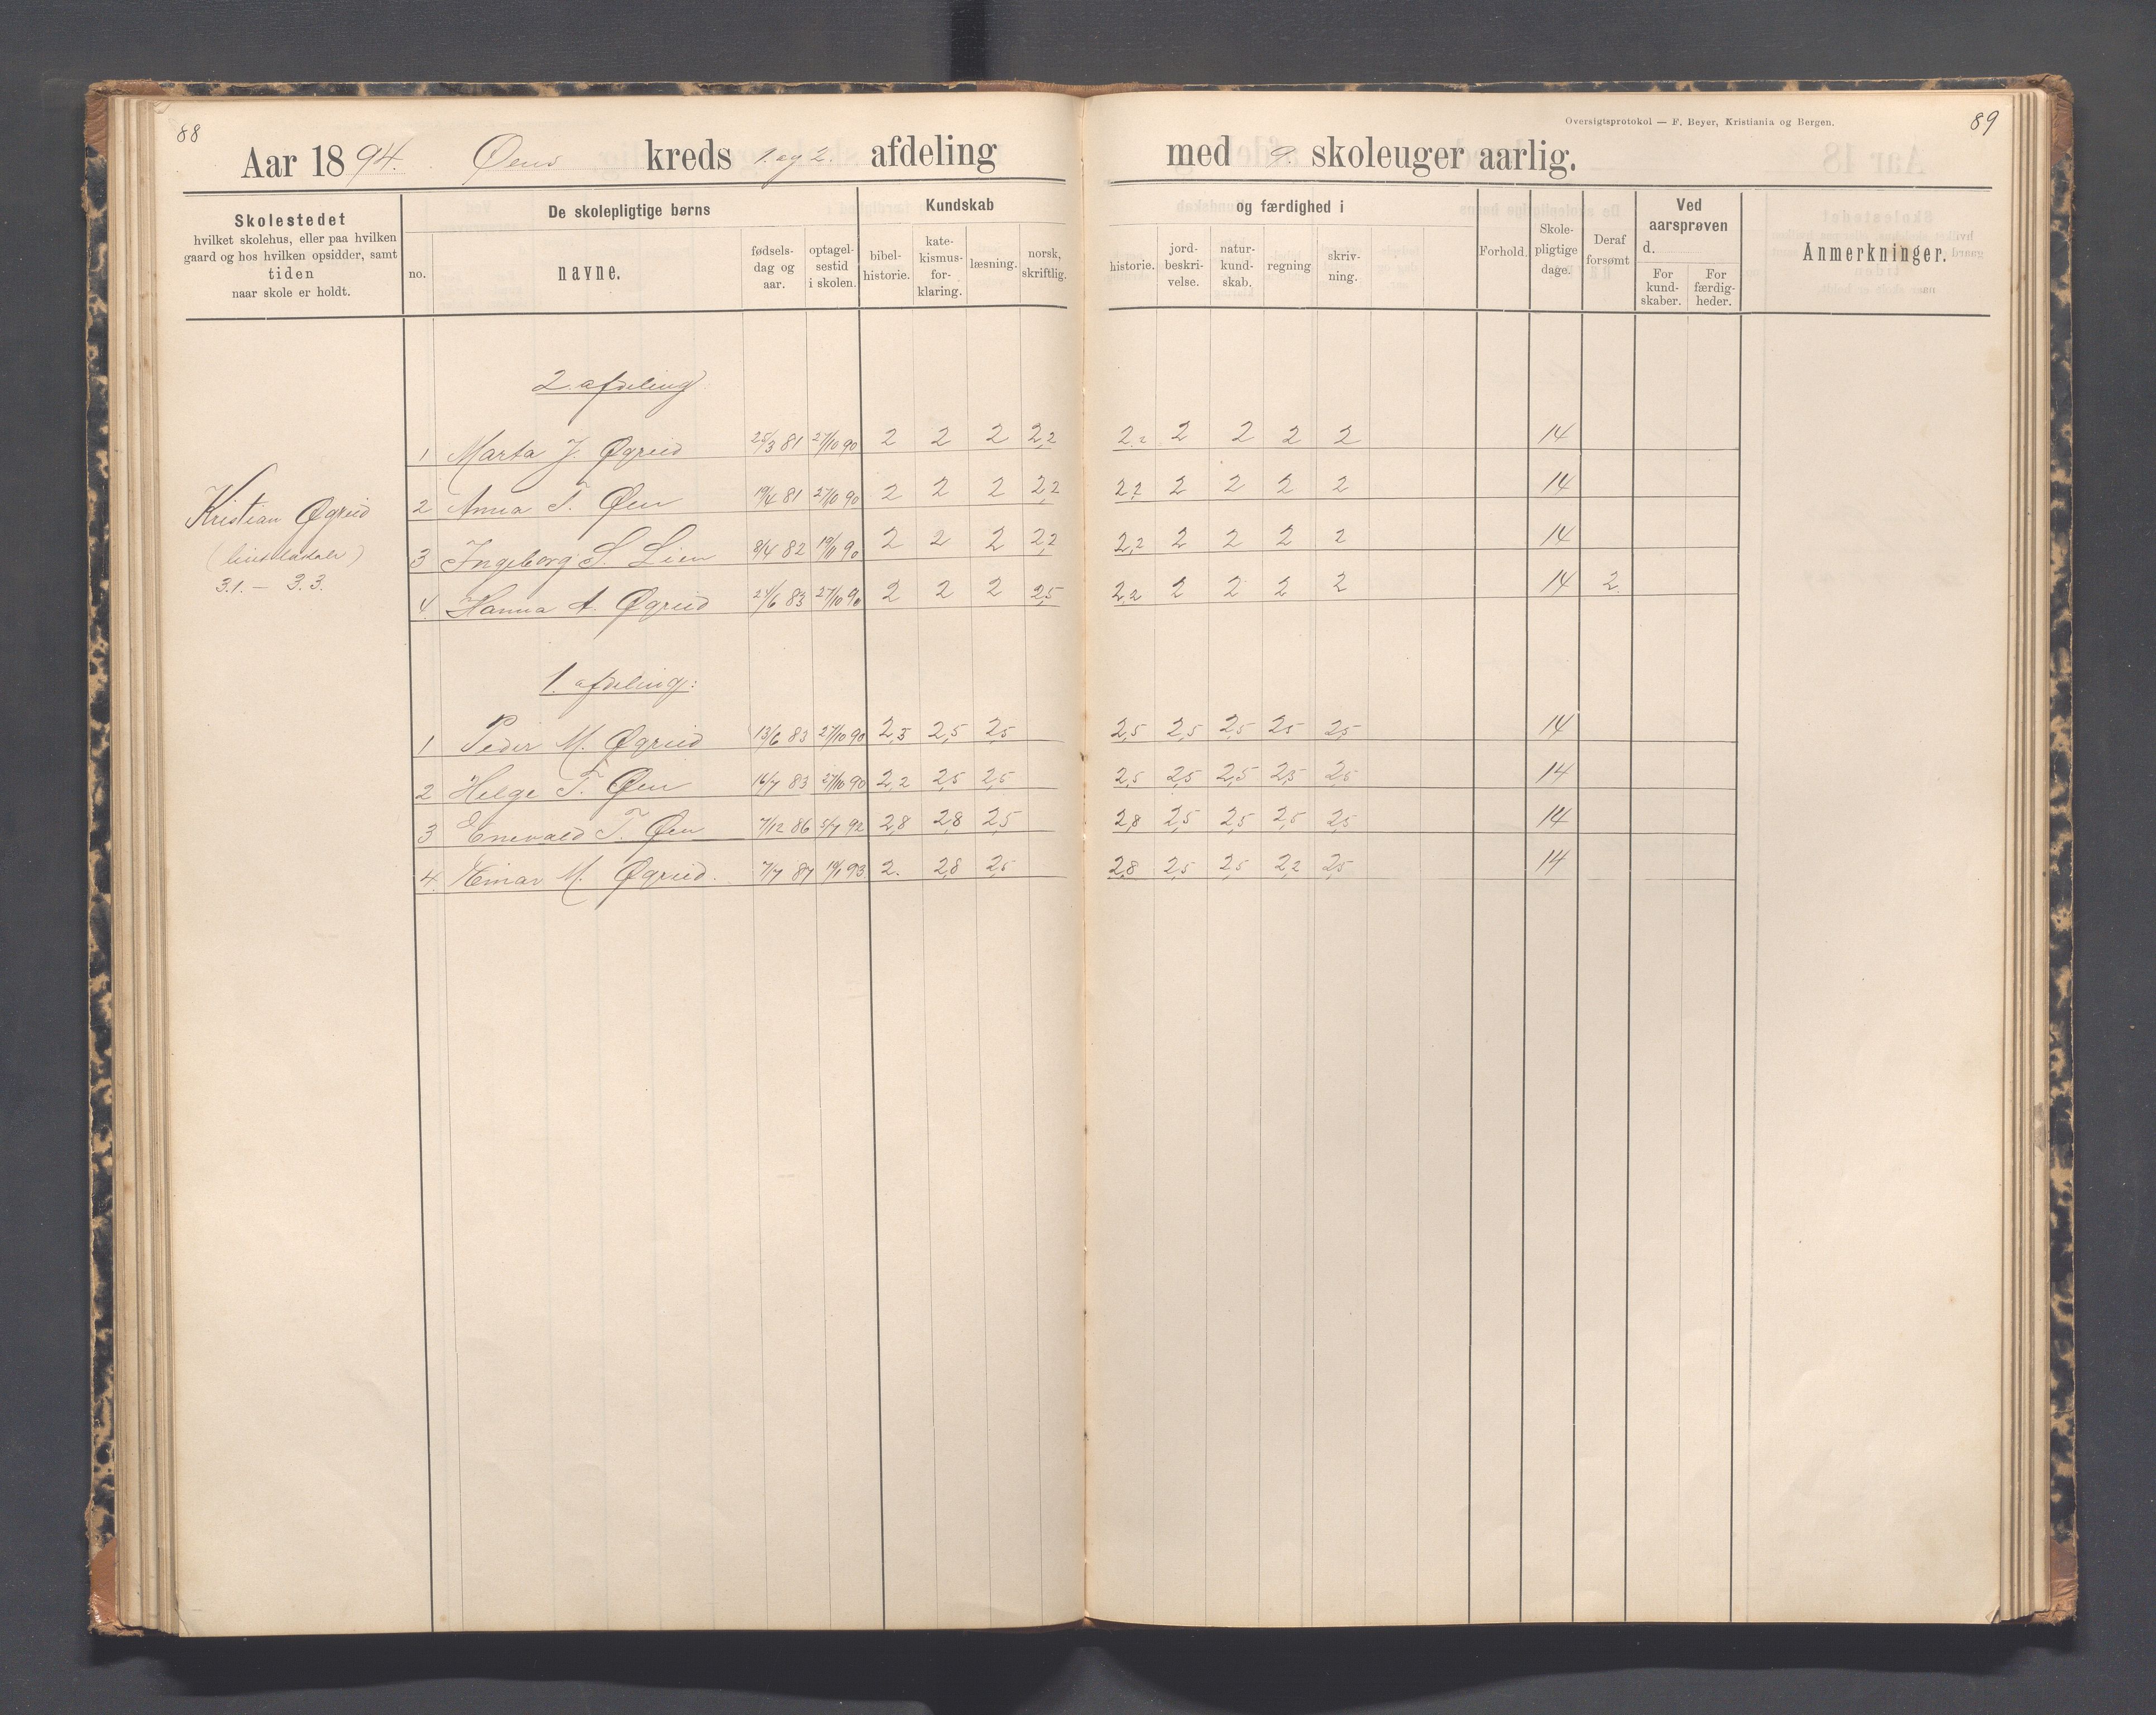 88
89
Oversigtsprotokol — F. Beyer, Kristiania og Bergen.
Aar 1894. Øens kreds 1. og 2. afdeling med 9. skoleuger aarlig.
Skolestedet
hvilket skolehus, eller paa hvilken
gaard og hos hvilken opsidder, samt
tiden
naar skole er holdt.
De skolepligtige børns
no.
navne.
fødsels-
dag og
aar.
optagel-
sestid
i skolen.
Kundskab
bibel-
historie.
kate-
kismus-
for-
klaring.
læsning.
norsk,
skriftlig.
og færdighed i
historie.
jord-
beskri-
velse.
natur-
kund-
skab.
regning
skriv-
ning.
Forhold.
Skole-
pligtige
dage.
Deraf
forsømt
Ved
aarsprøven
d.
For
kund-
skaber.
For
færdig-
heder.
Anmerkninger.
2 afdeling:
1 Marta J. Øgreid 25/3 81 27/10 90 2 2 2 2,2 2,2 2 2 2 2 14
2 Anna T. Øen 19/4 81 27/10 90 2 2 2 2,2 2,2 2 2 2 2 14
3 Ingeborg S. Lien 8/4 82 90 2 2 2 2,2 2,2 2 2 2 2 14
4 Hanna A. Øgreid 24/6 83 27/10 90 2 2 2 2,5 2,2 2 2 2 2 14 2.
Kristian Øgreid
3.1. — 3.3.
1. afdeling:
1 Peder M. Øgreid 13/6 83 27/10 90 2,5 2,5 2,5 2,5 2,5 2,5 2,5 2,5 14
2 Helge T. Øen 16/7 83 27/10 90 2,2 2,5 2,5 2,5 2,5 2,5 2,5 2,5 14
3 Enevald T. Øen 7/12 86 5/7 92 2,8 2,8 2,5 2,8 2,5 2,5 2,5 2,5 14
4. Einar M. Øgreid. 7/7 87 93. 2. 2,8 2,5 2,8 2,5 2,5 2,2 2,5 14